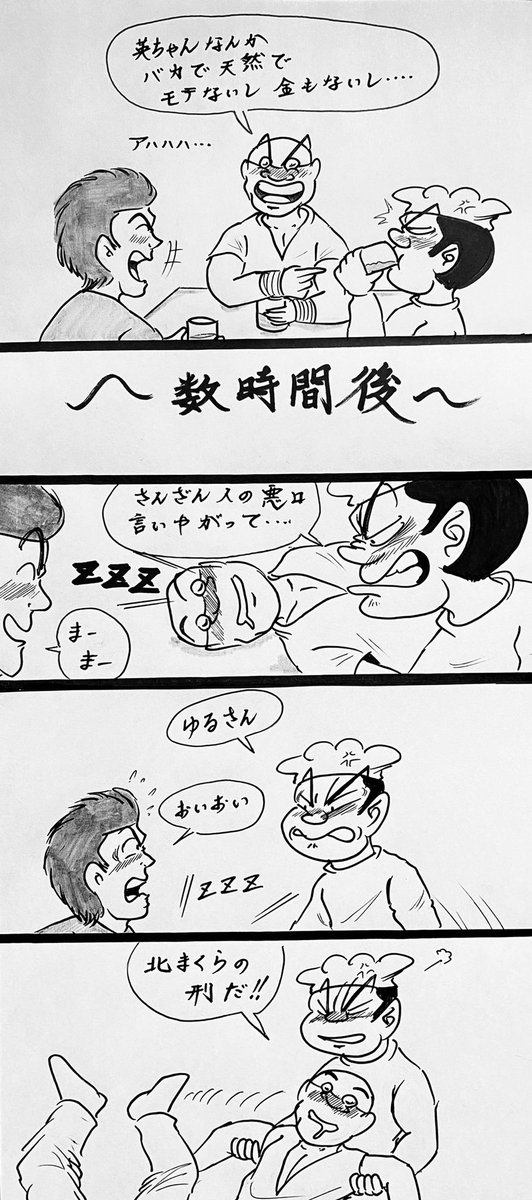 英ちゃんなんか
バカで天然で
モテないし金もないし‥‥
アハハハ‥‥
〜数時間後〜
さんざん人の悪口
言いやがって‥‥
ZZZ
まー
まー
ゆるさん
おいおい
ZZZ
北まくらの
刑だ!!